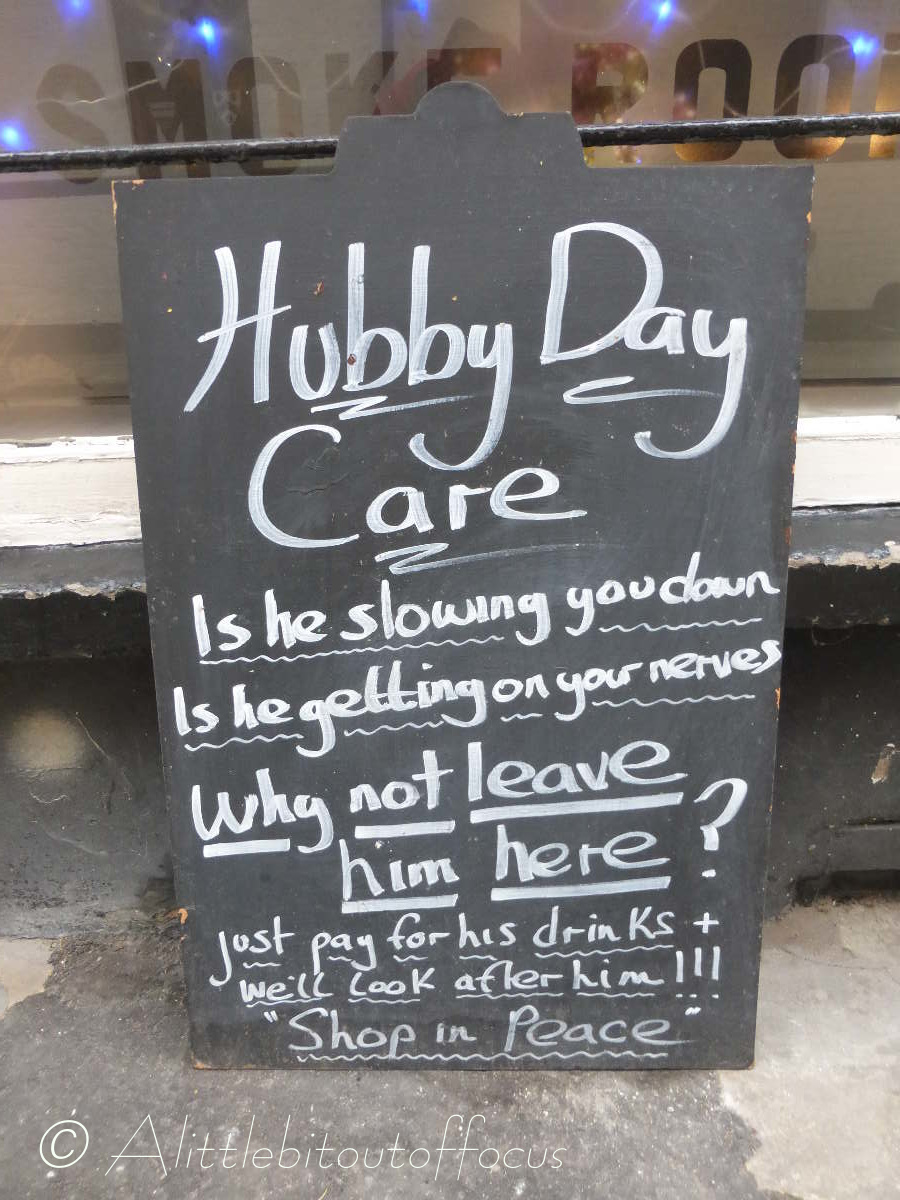 SMOKE ROO
Hubby Day
Care
Is he slowing you down
Is he getting on your nerves
Why not leave
him here ?
just pay for his drinks +
we'll look after him!!!
"Shop in Peace"
© Alittlebitoutoffocus